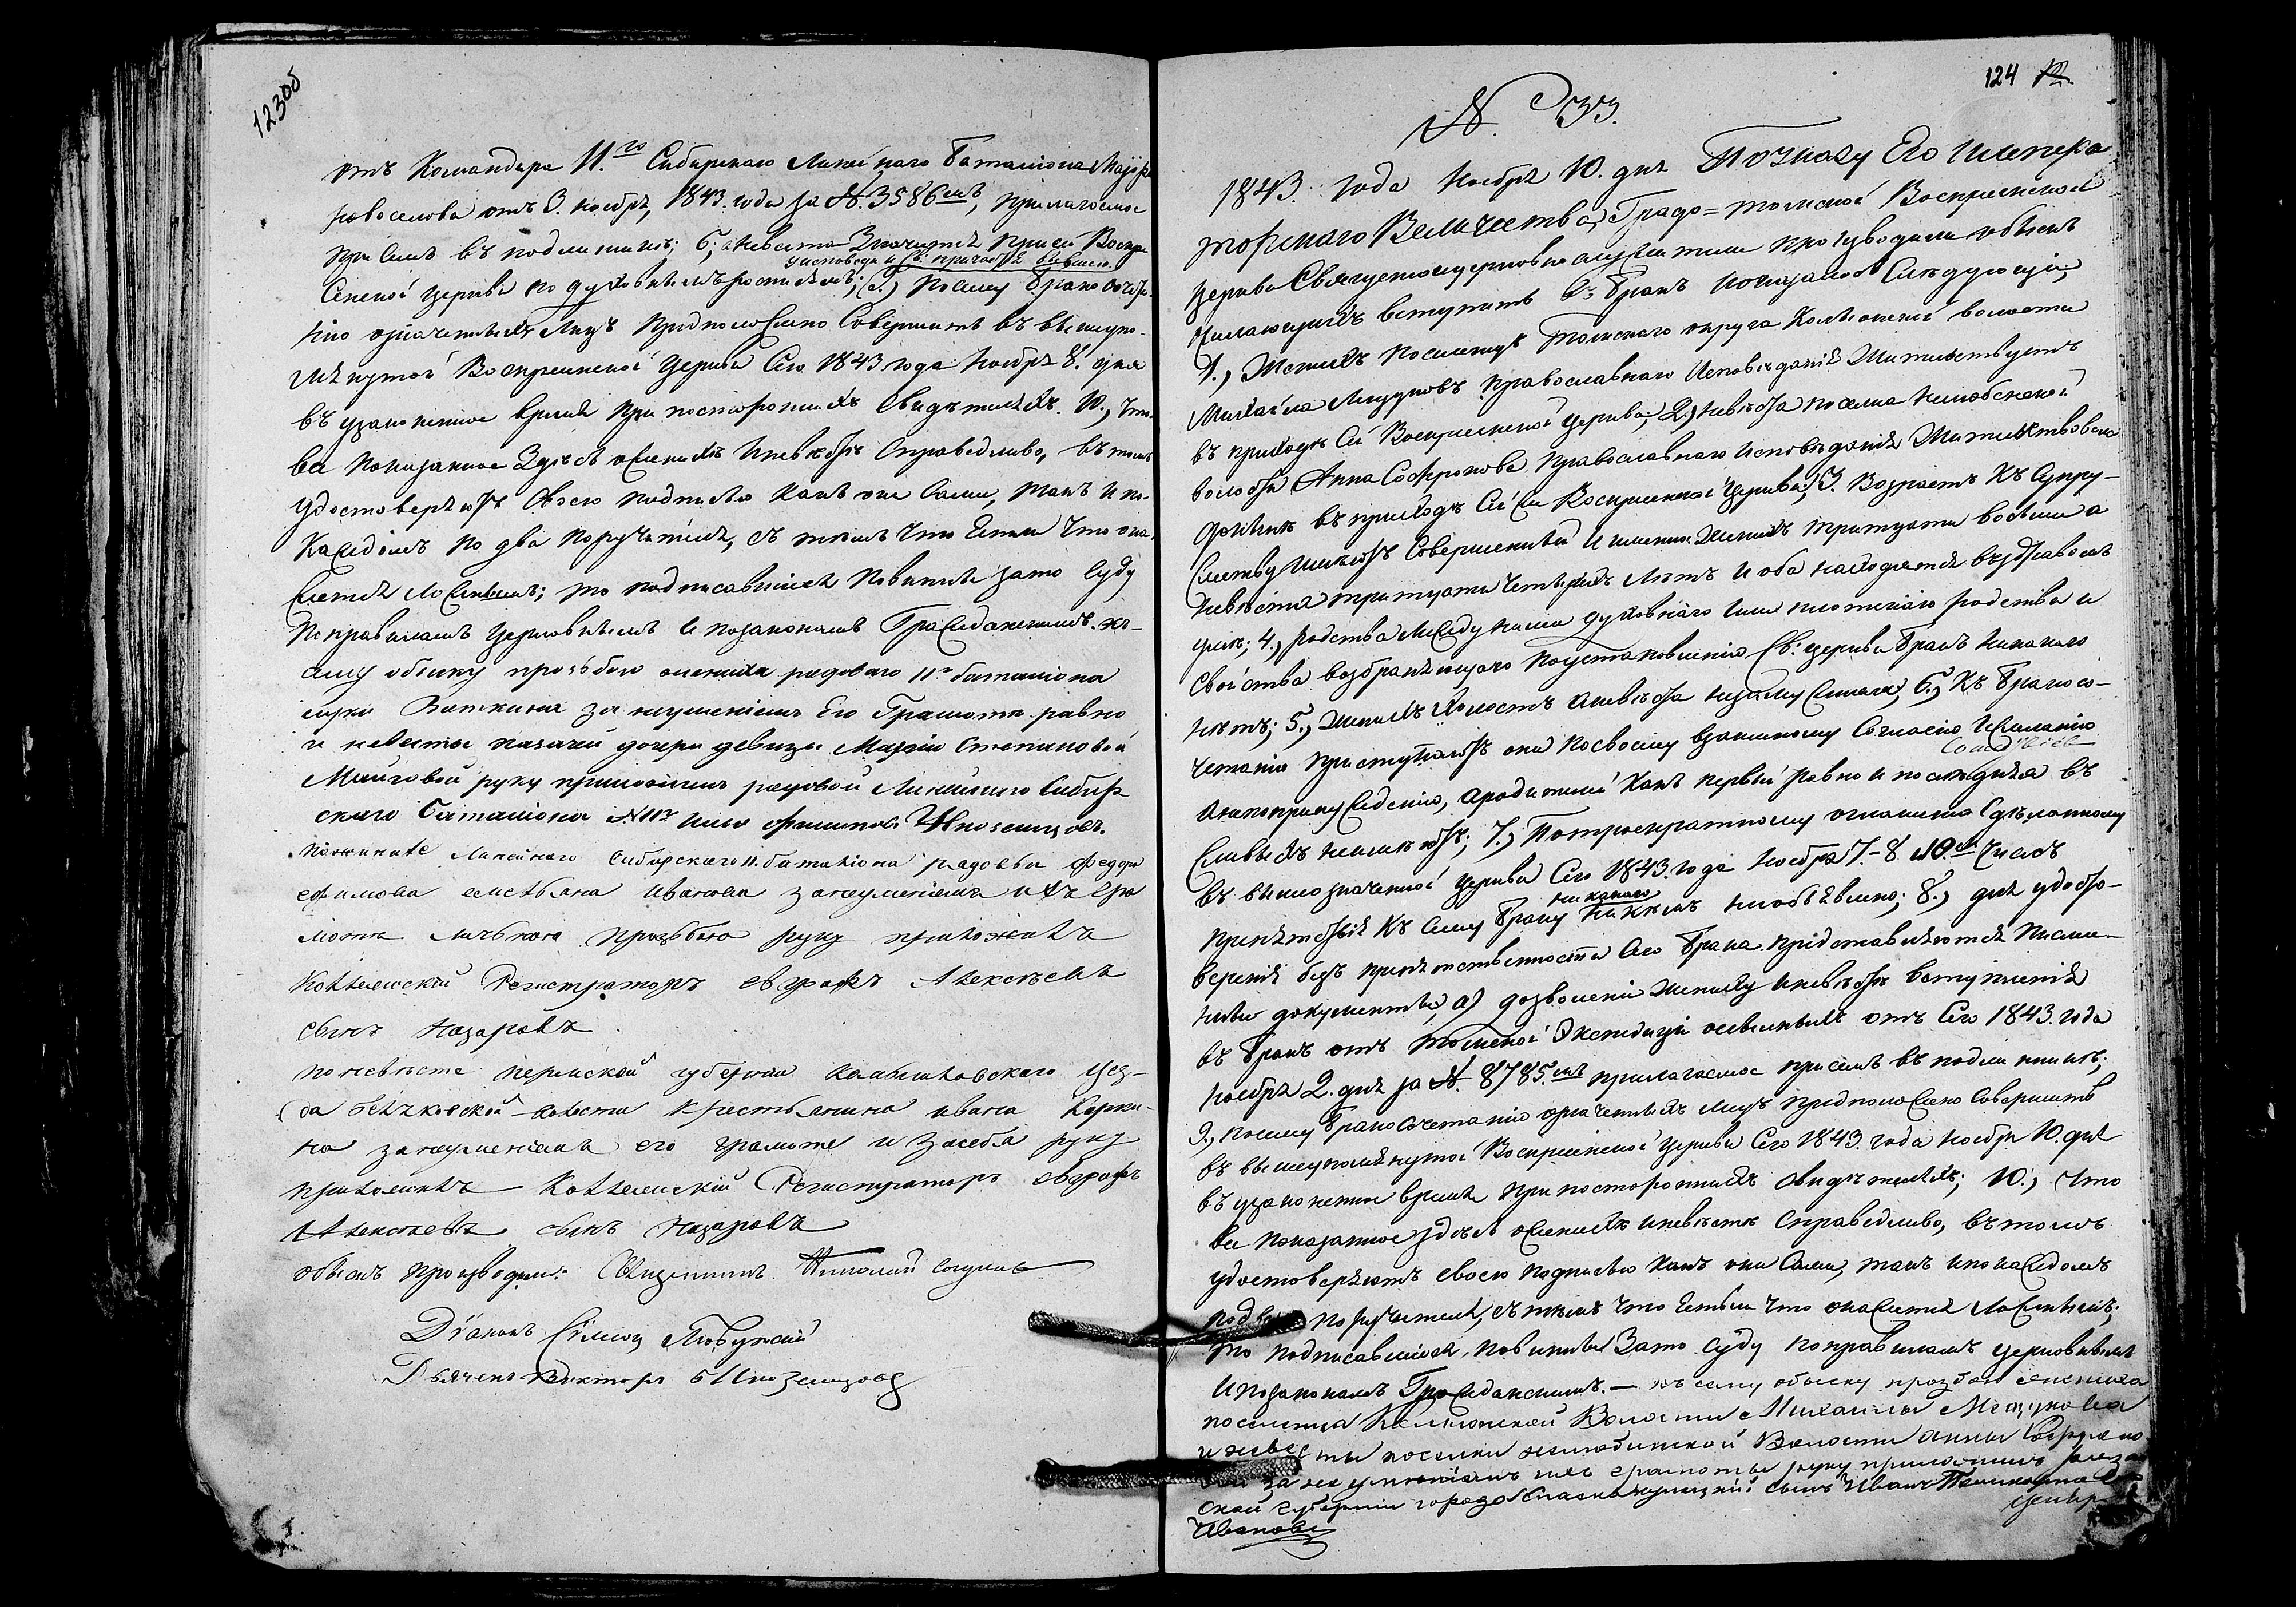 123об
отъ Командира 11.го Сибирскаго Линейнаго Баталіона Маіора
Новоселова отъ 3. ноября, 1843. года за №. 3586.мъ, прилагаемое
при семъ въ подлинникѣ; б, а невеста Значится при сей Воскре
у исповеди и Св: причастія бывшею
сенской церкви по духовнымъ росписямъ; 9.) Посему бракосочета
нію означенныхъ Лицъ предположено Совершить въ вышеупо-
мянутой Воскресенской Церкви Сего 1843 года Ноября 8. дня
въ узаконенное время при постороннихъ Свидѣтеляхъ. 10., Что
все показанное Здѣсь о женихѣ и невѣстѣ Справедливо, въ томъ
удостоверяютъ Своею подписью какъ они Сами, такъ и по
каждомъ по два поручителя, съ тѣмъ что Естли что ока
жется Ложнымъ; то подписавшіися повинны за то Суду
по правиламъ церковнымъ и по законамъ Гражданскимъ. къ
сему обыску прозьбою жениха рядоваго 11го баталіона
Вяткина за неумѣніемъ Его Грамотѣ равно
и невесты казачей дочери девицы Маріи Степановой
руку приложилъ рядовой Линейнаго Сибир
скаго Баталіона №11го Филиповъ Иноземцовъ.
по женихе Линейнаго Сибирскаго 11. баталіона рядовы Федоръ
Ефимова Иванова за неумениемъ ихъ гра
моте личьною прозьбою руку приложилъ
Коллежскій Регистраторъ Евграфъ Алексѣевъ
сынъ Назаровъ
по невѣсте пермской губернии Камышловского уез-
да волости Крестьянина ивана
на за неумениемъ его грамоте и за себя руку
приложилъ Коллежскій Регистраторъ Евграфъ
Алексѣевъ сынъ Назаровъ
обыскъ производили: Священникъ Николай
Діаконъ Симеонъ
Дьячекъ Викторъ Иноземцовъ
124
№. 33.
1843. года Ноября 10. дня По Указу Его Импера
торскаго Величества, Градо=томской Воскресенской
церкви Священноцерковнослужители производили обыскъ
желающихъ вступить въ бракъ и оказалось Слѣдующіе,
1., Женихъ поселенецъ Томскаго округа волости
Михайла православнаго Исповѣданія Жительствуетъ
въ приходѣ Сей Воскресенской церкви, 2., невѣста поселка Нелюбинской
волости Анна Софронова православнаго исповѣданія Жительствовала
въ приходѣ Сей же Воскресенской церкви, 3. Возрастъ къ Супру-
жеству имѣютъ совершенный и именно Женихъ тритцати восьми а
Невѣста тритцати четырехъ Лѣтъ и оба находятся въ здравомъ
умѣ; 4., родства между ними духовнаго или плотскаго родства и
Свойства возбраняющаго по установленію Св: церкви бракъ никакого
нѣтъ; 5., Женихъ Холостъ а невѣста незамужняя, 6., къ бракосо-
четанію приступаютъ они по своему взаимному Согласію и желанію
а не по принужденію, а родителей какъ первый равно и послѣдняя въ
живыхъ неимѣютъ; 7., По троекратному оглашенію Сдѣланному
въ вышеозначенной церкви Сего 1843. года Ноября 7.- 8 и 10.го Числъ
никакого
препятствія къ Сему браку никѣмъ необъявлено; 8., для удосто-
веренія безпрепятственности Сего брака представляются письмен-
ные документы, а) дозволеніе Жениху и невѣсте вступленія
въ бракъ отъ Томской Экспедиціи о ссыльныхъ отъ Сего 1843. года
Ноября 2. дня за №. 8785.мъ прилагаемое при семъ въ подлинникѣ;
9., посему бракосочетанію означенныхъ Лицъ предположено Совершить
въ вышеупомянутой Воскресенской Церкви Сего 1843. года Ноября 10. дня
въ узаконенное время при постороннихъ Свидѣтеляхъ; 10., Что
все показанное здѣсь о женихѣ и невѣстѣ Справедливо, въ томъ
удостоверяютъ своею подписью какъ они Сами, такъ и по каждомъ
по два поручителя, съ тѣмъ что Естьли что окажется Ложнымъ;
то подписавшіися, повинны За то Суду по правиламъ церковнымъ
и по законамъ Гражданскимъ. — къ сему обыску прозбою жениха
поселенца Волости Михаилы
и невесты поселки нелюбинской Волости Анны Софроно
за неумениемъ ихъ грамоты руку приложилъ
ской Губернии города Спаска сынъ Иванъ
Ивановъ